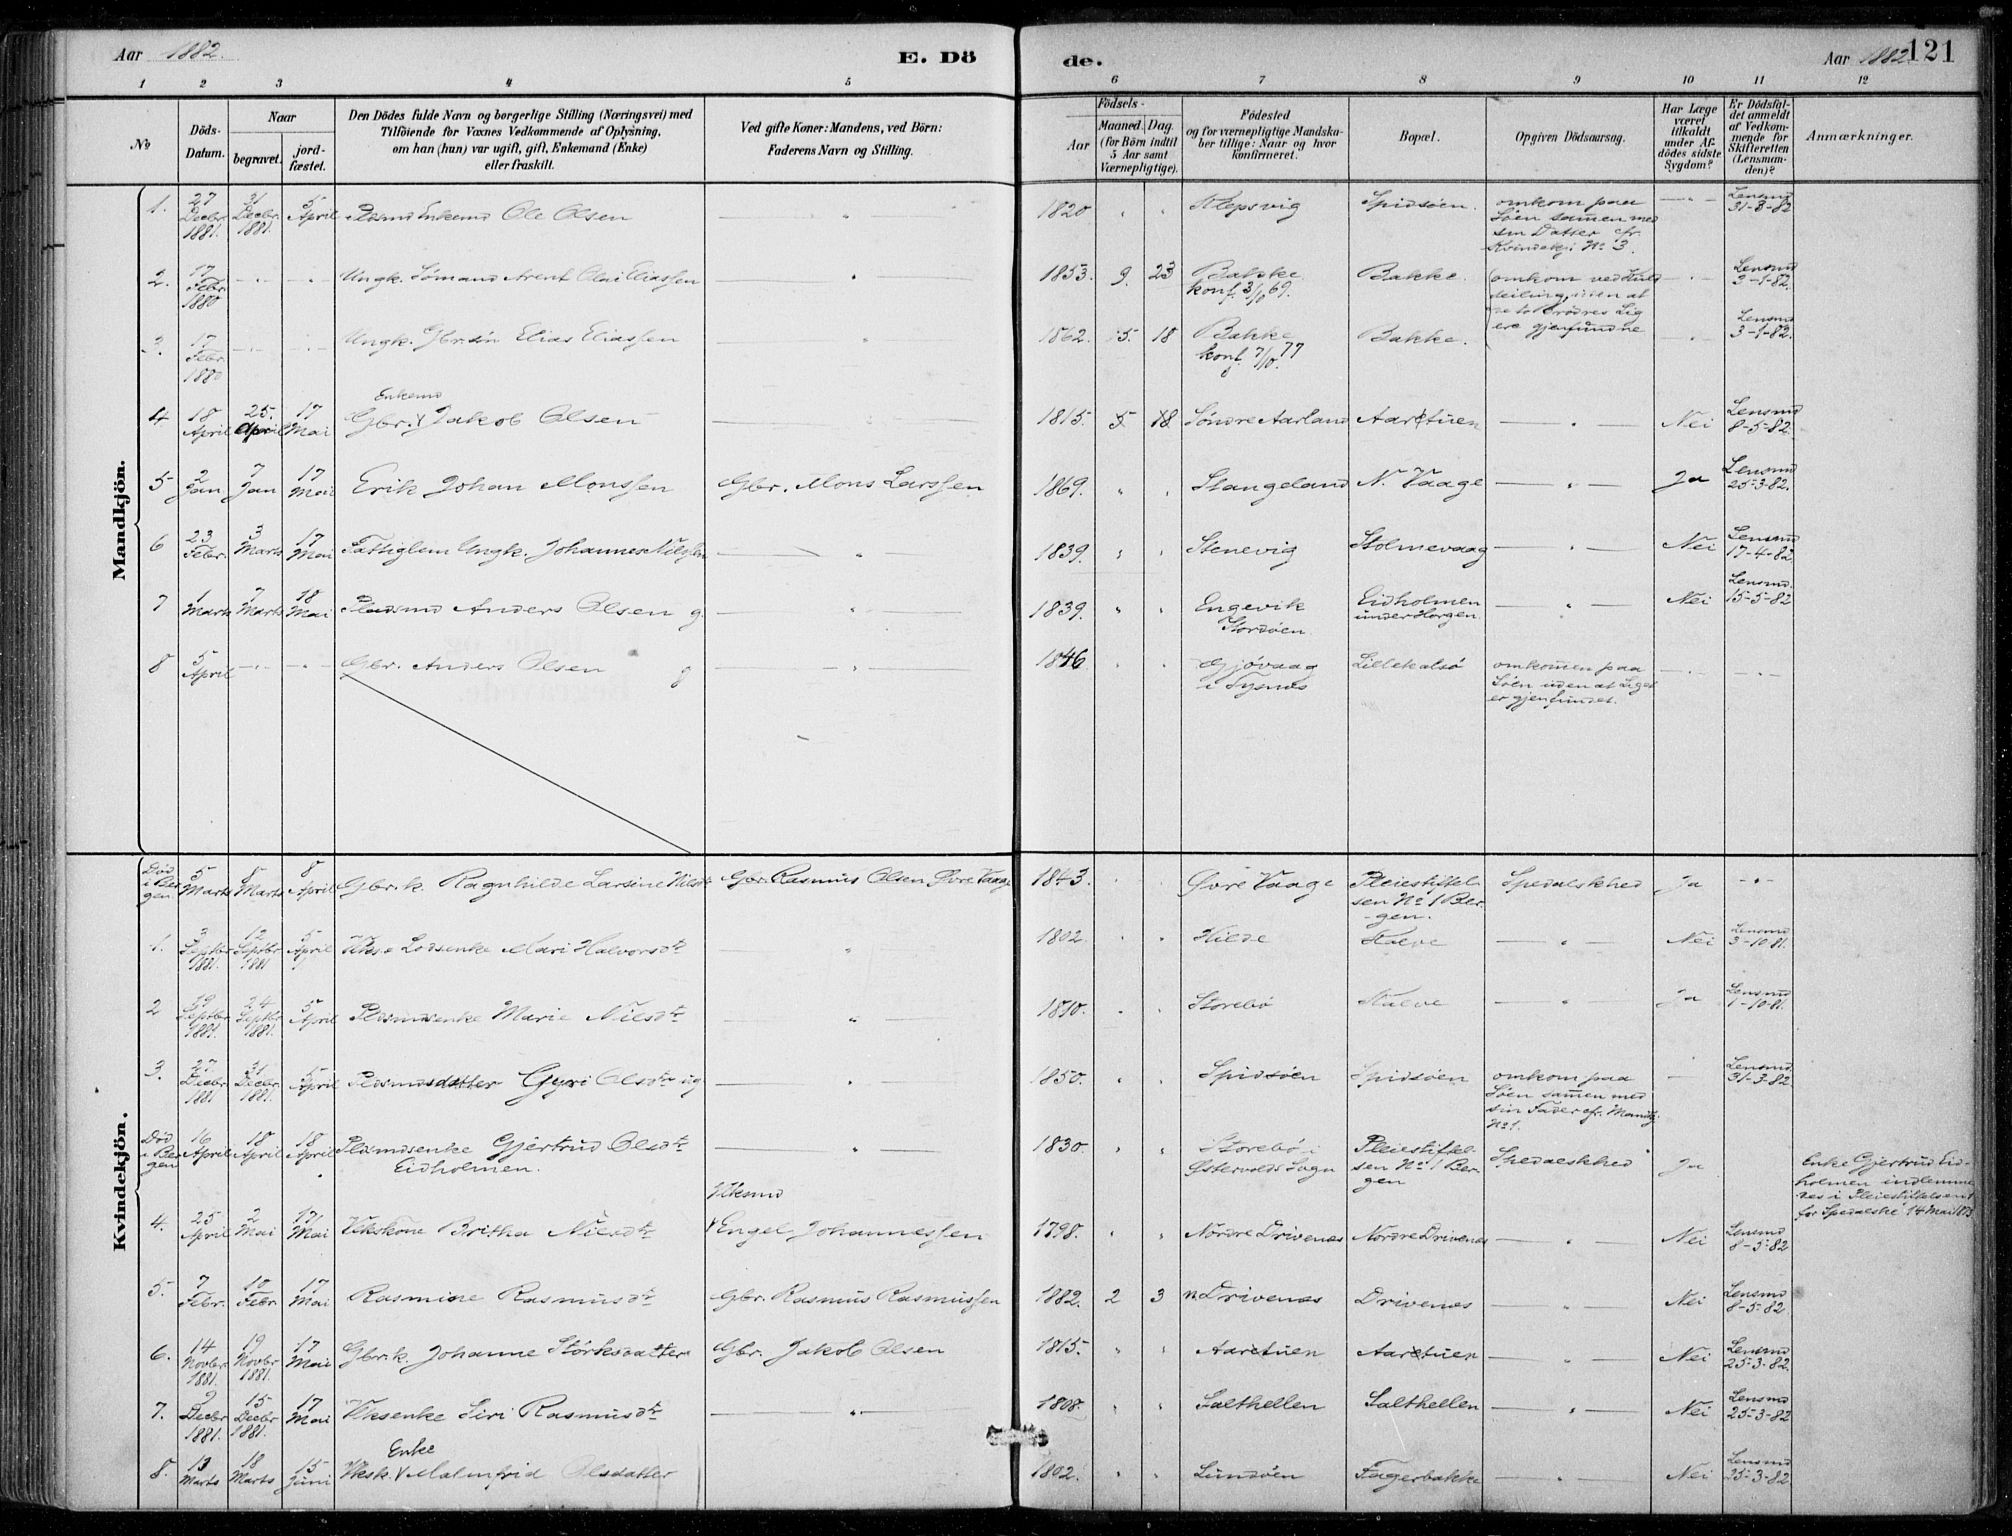 Aar 1882.
E. Dö
de.
Aar 1882.
121
1 2 3 4 5 6 7 8 9 10 11 12
No
Döds-
Datum.
Naar
begravet.
jord-
fæstet.
Den Dödes fulde Navn og borgerlige Stilling (Næringsvei) med
Tilföiende for Voxnes Vedkommende af Oplysning,
om han (hun) var ugift, gift, Enkemand (Enke)
eller fraskilt.
Ved gifte Koner: Mandens, ved Börn:
Faderens Navn og Stilling.
Födsels-
Aar
Maaned.
Dag.
(for Börn indtil
5 Aar samt
Værnepligtige).
Födested
og for værnepligtige Mandska-
ber tillige: Naar og hvor
konfirmeret.
Bopæl.
Opgiven Dödsaarsag.
Har Læge
været
tilkaldt
under Af-
dödes sidste
Sygdom?
Er Dödsfal-
det anmeldt
af Vedkom-
mende for
Skifteretten
(Lensman-
den)?
Anmærkninger.
Mandkjön.
1. 27 Decbr 1881. 31 Decbr 1881. 5 April Pladsmd Enkemd Ole Olsen " 1820 " " Klepsvig Spidsöen. omkom paa
Söen sammen med
sin Datter cfr.
Kvindekj. No 3. — " — Lensmd 31-3-82
2. 17 Febr. 1880 " " Ungk. Sömand Arent Olai Eliassen " 1853. 9. 23 Bakke
konf. 3/10 69. Bakke. omkom ved
seiling, uden at
de to Brödres Lig
ere gjenfundne " Lensmd 3-1-82.
3. 17 Febr. 1880 " " Ungk. Gbr.sön Elias Eliassen " 1862. 5. 18 Bakke
konf. 7/10 77 Bakke. " Lensmd 3-1-82.
Enkemd
4 18 April 25. April 17 Mai Gbr. Jakob Olsen " 1815. 5. 18 Söndre Aarland Aaretuen " Nei Lensmd 8-5-82.
5 2 Jan 7 Jan 17 Mai Erik Johan Monssen Gbr. Mons Larssen 1869. " " Stangeland N. Vaage " Ja Lensmd 25-3-82.
6 23 Febr. 3 Marts 17 Mai Fattiglem Ungk. Johannes Nilssen " 1839. " " Stenevig Stolmevaag " Nei Lensmd 17-4-82
7 1 Marts 7 Marts 18 Mai Pladsmd Anders Olsen g. " 1839. " " Engevik
Stordöen Eidholmen
under Horgen " Nei Lensmd. 15-5-82
8 5 April " " Gbr. Anders Olsen g " 1846 " " Gjövaag
i Tysnes Lillekalsö omkommen paa
Söen uden at Liget
er gjenfundet. " "
Kvindekjön.
Död i Bergen. 5 Marts 5 Marts 8 April Gbr.k. Ragnhilde Larsine Nilsdtr Gbr. Rasmus Olsen Övre Vaage 1843. Övre Vaage Pleiestiftel-
sen No 1 Ber-
gen. Spedalskhed Ja "
1. 3 Septbr 1881. 12 Septbr 1881 5 April Lodsenke Mari Halvorsdtr " 1802 " " Hilde " Nei Lensmd 3-10-81.
2 19 Septbr 1881. 24 Septbr 1881. 5 April Pladsmdsenke Marie Nilsdtr " 1810. " " Storebö " Ja Lensmd 1-10-81.
3. 27 Decbr 1881 31 Decbr. 1881. 5 April Pladsmdsdatter Gyri Olsdtr ug " 1850. " " Spidsöen Spidsöen omkom paa
Söen sammen med
sin Fader cfr. Mandkj
No 1. — Lensmd. 31-3-82
Död i Bergen 16 April 18 April 18 April Pladsmdsenke Gjertrud Olsdtr
Eidholmen. " 1830. " " Storebö i
Östervolds Sogn Pleiestiftel-
sen No 1 Ber-
gen Spedalskhed Ja Enke Gjertrud Eid-
holmen indlemme
des i Pleiestiftelsen
for Spedalske 14 Mai
4. 25 April 2 Mai 17 Mai Vkskone Britha Nilsdtr Vksmd
Engel Johannessen 1798. " " Nordre Drivenes Nordre Drivenes " Nei Lensmd 8-5-82
5. 7 Febr. 10 Febr 17 Mai Rasmine Rasmusdtr Gbr. Rasmus Rasmussen 1882. 2 3 N. Drivenes Drivenes " Nei Lensmd 8-5-82
6. 14 Novbr. 1881. 19 Novbr 1881. 17 Mai Gbr.k. Johanne Störksdatter Gbr. Jakob Olsen 1815. " " Aaretuen Aaretuen " Nei Lensmd 25-3-82
7. 9 Decbr 1881. 15 Decbr 1881. 17 Mai Vksenke Siri Rasmusdtr " 1808. " " Salthellen Salthellen " Nei Lensmd 25-3-82
Enke
8. 13 Marts 18 Marts 15 Juni Vksk. Malmfrid Olsdatter 1802. " " Lunsöen Fagerbakke " Nei Lensmd 25-3-82